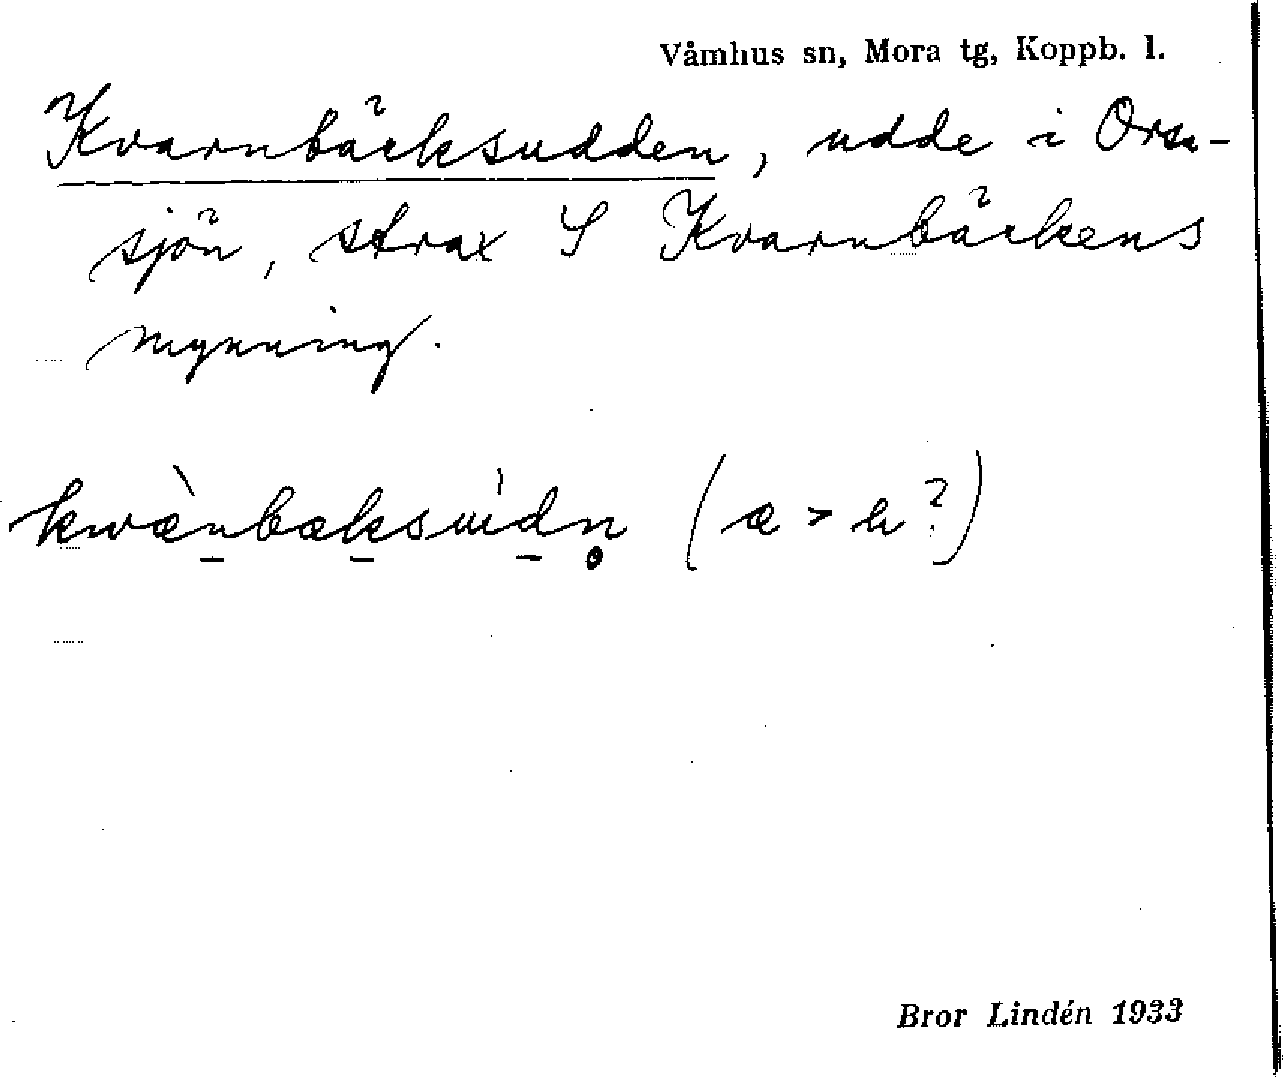 Våmhus sn, Mora tg, Koppb. l.
Kvarnbäcksudden, udde i Orsa-
sjön, strax S Kvarnbäckens
mynning.
kwæ̀nbæksudn̥ (æ > a?)
Bror Lindén 1933